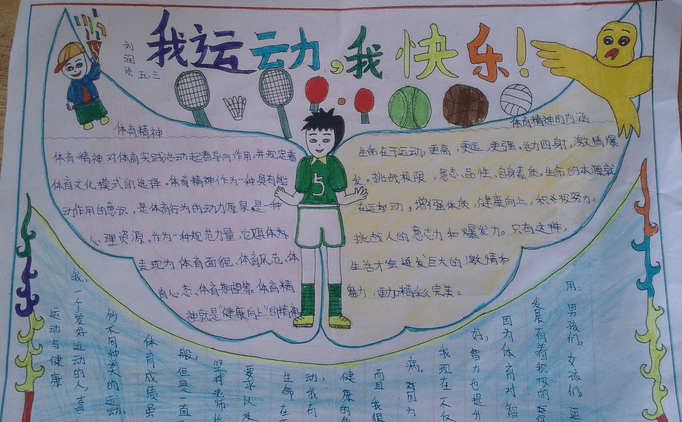 我运动,我快乐!
刘润
五.三
体育精神
体育精神对体育实践活动起着导向作用,并规定着
体育文化模式的选择。体育精神作为一种具有能
动作用的意识,是体育行为的动力源泉,是一种
心理资源,作为一种规范力量,它
表现为体育面貌、体育风范、体
育心态、体育期望等,体育精
神就是"健康向上"的精神
5
体育精神的内涵
生命在于运动,更高,更远,更强,活力四射,激情爆
发,挑战极限,意志品性,自身素质。生命的本源就
在运动,增强体质,健康向上,积极努力,
挑战人的意志力和爆发力。只有这样,
生活才能迸发巨大的激情和
魅力,更加精彩,完美。
用,男孩们,女孩们,运
发展有着积极的
因为体育对智
好,智力也提升
我现在不仅
病,
而且我很
健康的
动,我有
生命在
要求从
坚持老师
般,但是一直
体育成绩虽
的不同种类的运动
我,一个爱好运动的人,喜
运动与健康